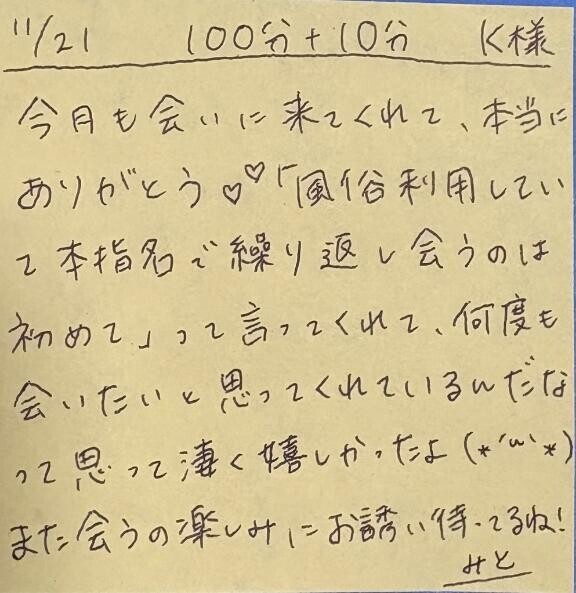 11/21 100分+10分 K様
今月も会いに来てくれて、本当に
ありがとう♡♡「風俗利用してい
て本指名で繰り返し会うのは
初めて」って言ってくれて、何度も
会いたいと思ってくれているんだな
って思って凄く嬉しかったよ(*´ω`*)
また会うの楽しみにお誘い待ってるね!
みと